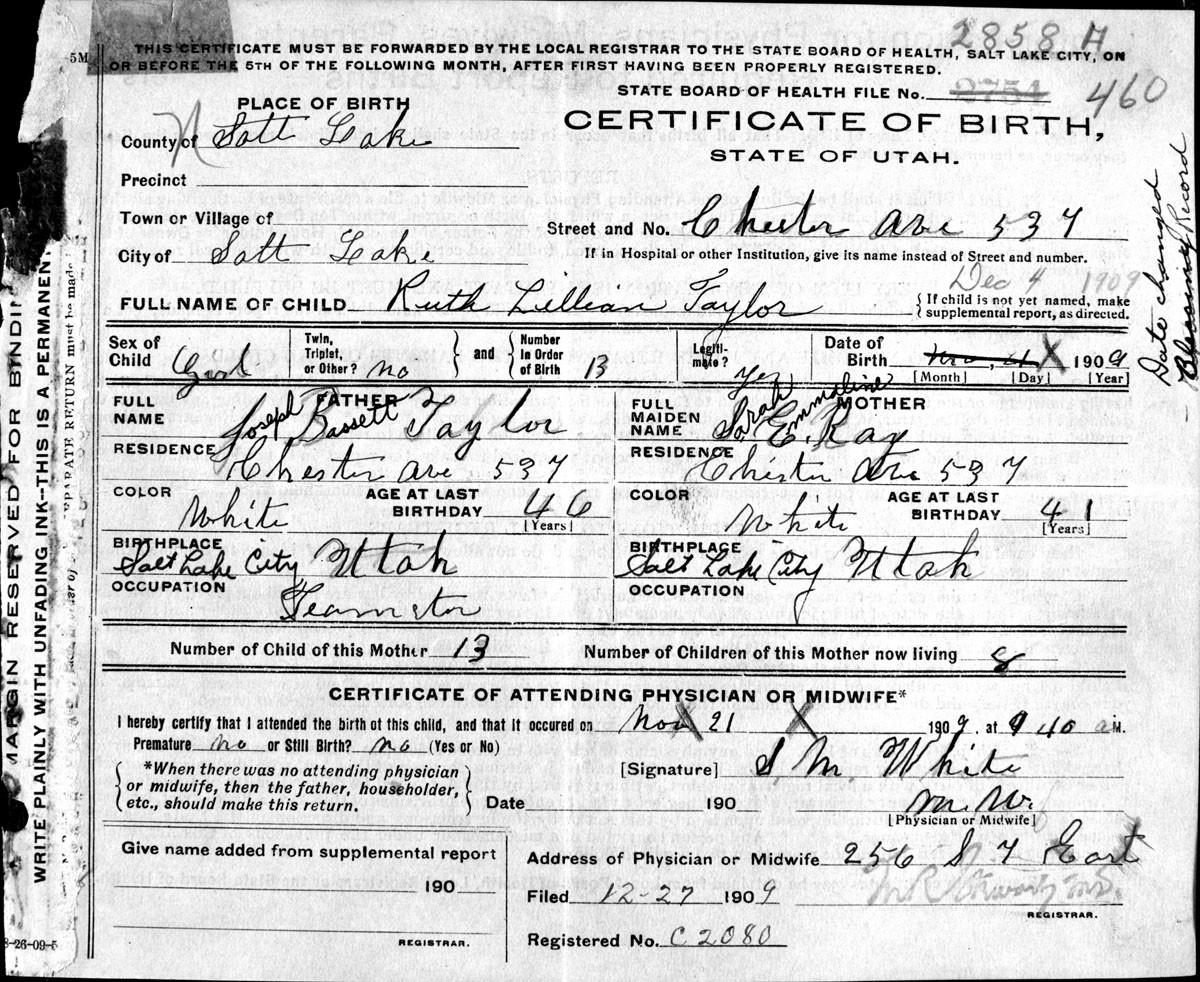 2858 H
5M THIS CERTIFICATE MUST BE FORWARDED BY THE LOCAL REGISTRAR TO THE STATE BOARD OF HEALTH, SALT LAKE CITY, ON
OR BEFORE THE 5TH OF THE FOLLOWING MONTH, AFTER FIRST HAVING BEEN PROPERLY REGISTERED.
STATE BOARD OF HEALTH FILE No. 2754 460
PLACE OF BIRTH
CERTIFICATE OF BIRTH,
STATE OF UTAH.
County of Salt Lake
Precinct
Town or Village of
Street and No. Chester Ave 537
City of Salt Lake
If in Hospital or other Institution, give its name instead of Street and number.
Dec 4 1909
FULL NAME OF CHILD Ruth Lillean Taylor
{If child is not yet named, make
supplemental report, as directed.
Date changed
Blessing Record
Sex of Child Girl
Twin, Triplet, or Other? no
and
Number In Order of Birth 13
Legiti-mate? Yes
Date of Birth Nov, 21 X 1909
[Month] [Day] [Year]
FATHER
FULL NAME Joseph Bassett Taylor
RESIDENCE Chester Ave 537
COLOR White
AGE AT LAST BIRTHDAY 46
[Years]
BIRTHPLACE Salt Lake City Utah
OCCUPATION Teamster
MOTHER
FULL MAIDEN NAME Sarah Emmaline E. Ray
RESIDENCE Chester Ave 537
COLOR White
AGE AT LAST BIRTHDAY 41
[Years]
BIRTHPLACE Salt Lake City Utah
OCCUPATION
Number of Child of this Mother 13
Number of Children of this Mother now living 8
CERTIFICATE OF ATTENDING PHYSICIAN OR MIDWIFE*
I hereby certify that I attended the birth of this child, and that it occured on Nov 21 X 1909, at 9 40 a M.
Premature no or Still Birth? no (Yes or No)
*When there was no attending physician
or midwife, then the father, householder,
etc., should make this return.
[Signature] S M. White
Date 190 M.W.
[Physician or Midwife]
Give name added from supplemental report
190
REGISTRAR.
Address of Physician or Midwife 256 S 7 East
Filed 12-27 1909
REGISTRAR.
Registered No. C2080
8-26-09-5
MARGIN RESERVED FOR BINDIN
WRITE PLAINLY WITH UNFADING INK--THIS IS A PERMANENT
SEPARATE RETURN must be made